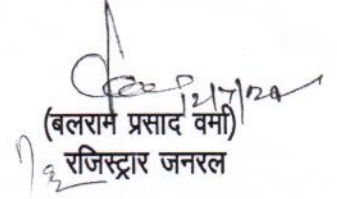 12/7/24
(बलराम प्रसाद वर्मा)
रजिस्ट्रार जनरल